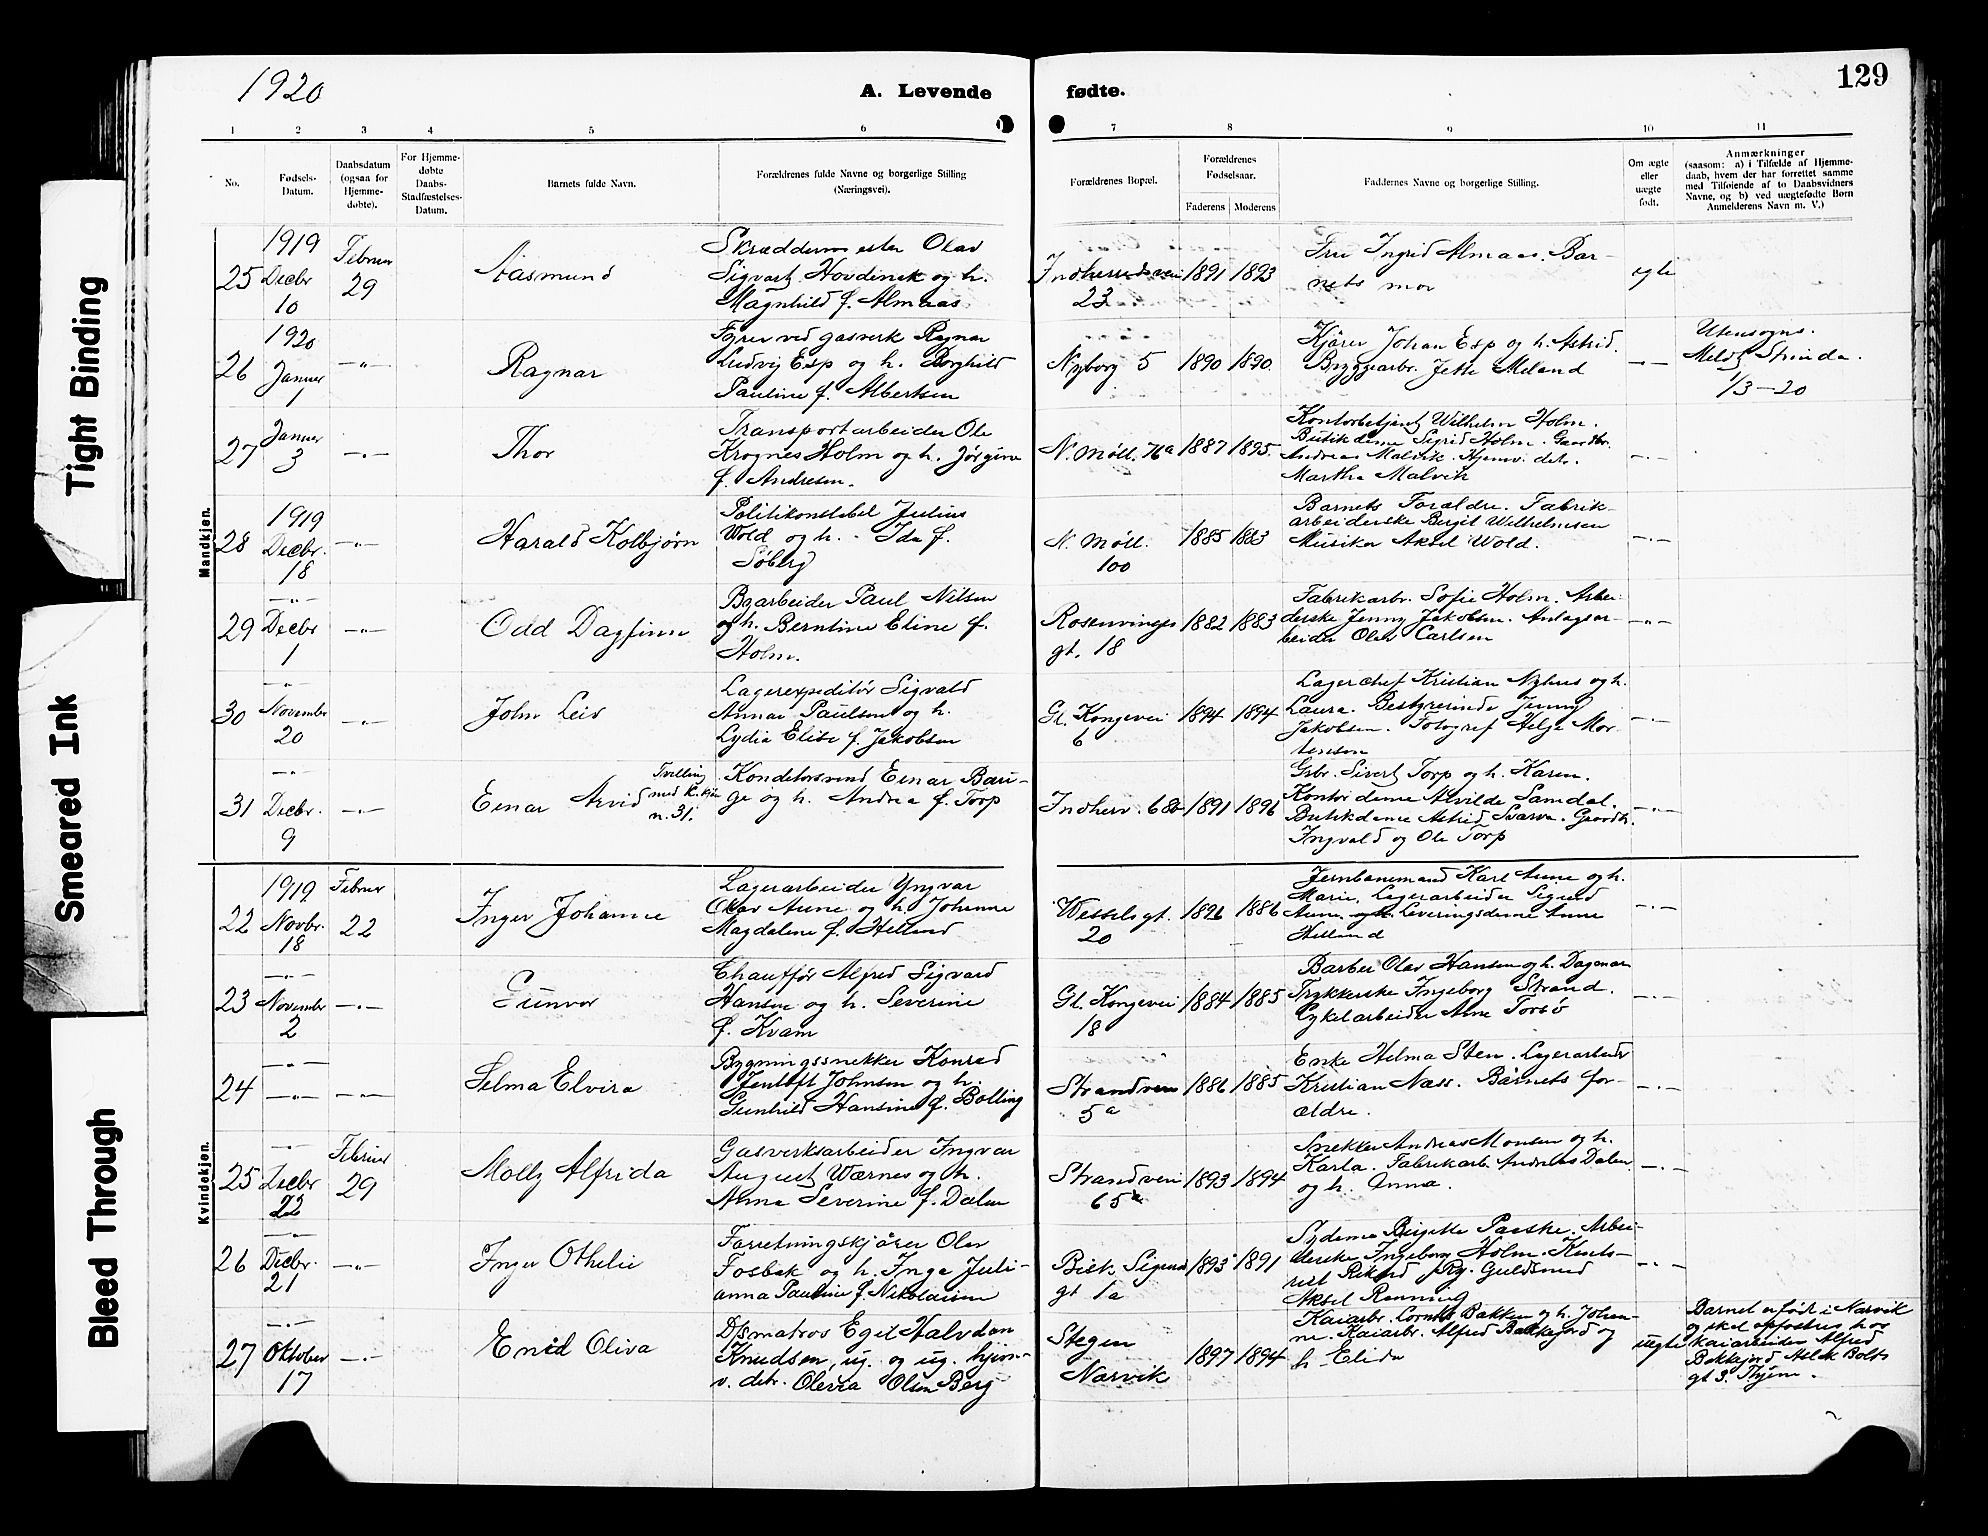 Tight Binding
Smeared Ink
Bleed Through
1920
A. Levende fødte.
129
1 2 3 4 5 6 7 8 9 10 11
No.
Fødsels-
Datum.
Daabsdatum
(ogsaa for
Hjemme-
døbte).
For Hjemme-
døbte
Daabs-
Stadfæstelses-
Datum.
Barnets fulde Navn.
Forældrenes fulde Navne og borgerlige Stilling
(Næringsvei).
Forældrenes Bopæl.
Forældrenes
Fødselsaar.
Faderens Moderens
Faddernes Navne og borgerlige Stilling.
Om ægte
eller
uægte
født.
Anmærkninger
(saasom: a) i Tilfælde af Hjemme-
daab, hvem der har forrettet samme
med Tilføiende af to Daabsvidners
Navne, og b) ved uægtefødte Børn
Anmelderens Navn m. V.)
Mandkjøn.
25
1919
Decbr
10
Februar
29
Aasmund
Skræddermester Olav
Sigvart Hovdenak og h.
Magnhild f. Almaas
Indherredsvei
23
1891 1893
Fru Ingrid Almaas. Bar-
nets mor
egte
26
1920
Januar
1
-"-
Ragnar
Fyrer ved gasverk Ragnar
Ludvig Esp og h. Borghild
Pauline f. Albertsen
Nyborg 5
1890 1890.
Kjører Johan Esp og h. Astrid.
Bryggearbr. Jette Meland
-"-
Utensogns.
Meldt Strinda.
1/3-20
27
Januar
3
-"-
Thor
Transportarbeider Ole
Krognes Holm og h. Jørgine
f. Andresen.
N. Møll. 76a
1887 1895.
Kontorbetjent Wilhelm Holm.
Butikdame Sigrid Holm. Gaardbr.
Andreas Malvik. Hjemv. dtr.
Martha Malvik
-"-
28
1919
Decbr.
18
-"-
Harald Kolbjørn
Politikonstabel Julius
Wold og h. - Ida f.
Søberg
N. Møll.
100
1885 1883
Barnets Forældre. Fabrik-
arbeiderske Bergit Wilhelmsen
Musiker Aksel Wold.
-"-
29
-"-
Decbr
1
-"-
Odd Dagfinn
Bgarbeider Paul Nilsen
og h. Berntine Eline f.
Holm.
Rosenvinges
gt. 18
1882 1883
Fabrikarbr. Sofie Holm. Arbei-
derske Jenny Jakobsen. Anlagsar-
beider Olav Carlsen
-"-
30
-"-
November
20
-"-
John Leiv
Lagerexpeditør Sigvald
Annar Paulsen og h.
Lydia Elise f. Jakobsen
Gl. Kongevei
6
1894 1894
Lagerchef Kristian Nyhus og h.
Laura. Bestyrerinde Jenny
Jakobsen. Fotograf Helge Mor-
tenson
-"-
31
-"-
Decbr.
9
-"-
Einar Arvid
Tvilling
med k.kjøn
n. 31.
Konditorsvend Einar Bau-
ge og h. Andrea f. Torp
Indherv. 68b
1891 1896
Gsbr. Sivert Torp og h. Karen.
Kontordame Alvilde Samdal.
Butikdame Astrid Svarva. Gaardbr.
Ingvald og Ole Torp
-"-
Kvindekjøn.
22
1919
Novbr.
18
Februar
22
Inger Johanne
Lagerarbeider Yngvar
Olav Aune og h. Johanne
Magdalene f. Helland
Wesselsgt.
20
1896 1886
Jernbanemand Karl Aune og h.
Marie. Lagerarbeider Sigurd
Aune. Leveringsdame Anne
Helland
-"-
23
-"-
November
2
-"-
Gunvor
Chauffør Alfred Sigvard
Hansen og h. Severine
f. Kvam
Gl. Kongevei
18
1884 1885
Barber Olav Hansen og h. Dagmar
Trykkerske Ingeborg Strand.
Cykelarbeider Arne Torsø
-"-
24
-"-
-"-
-"-
Selma Elvira
Bygningssnekker Konrad
Jentoft Johnsen og h.
Gunhild Hansine f. Bolling
Strandvein
5a
1886 1885
Enke Helma Sten. Lagerarbeider
Kristian Næss. Barnets for-
ældre.
-"-
25
-"-
Decbr
22
Februar
29
Molly Alfrida
Gasverksarbeider Ingvar
August Wærnes og h.
Anna Severine f. Dalen
Strandvein
65
1893 1894
Snekker Andreas Monsen og h.
Karla. Fabrikarb. Andreas Dalen
og h. Anna.
-"-
26
-"-
Decbr.
21
-"-
Inger Othelie
Forretningskjører Olav
Fosbak og h. Inga Juli-
anna Pauline f. Nikolaisen
Bisk. Sigurds
gt 1a
1893 1891
Sydame Birgitte Paaske. Arbei-
derske Ingeborg Holm.
Rikard Ry. Guldsmed
Aksel Rønning
-"-
27
-"-
Oktober
17
-"-
Enid Oliva
D/smatros Egil Halvdan
Knudsen, ug. og ug. hjem-
v. datr. Olevia Olsen Berg
Stegen
Narvik
1897 1894
Kaiarbr. Cornel. Bakken og h. Johan-
ne. Kaiarbr. Alfred Bakkejord og
h. Elida
uegte
Barnet er født i Narvik
og skal opfostres hos
kaiarbeider Alfred
Bakkejord, Aslak Bolts
gt 3. Thjem.